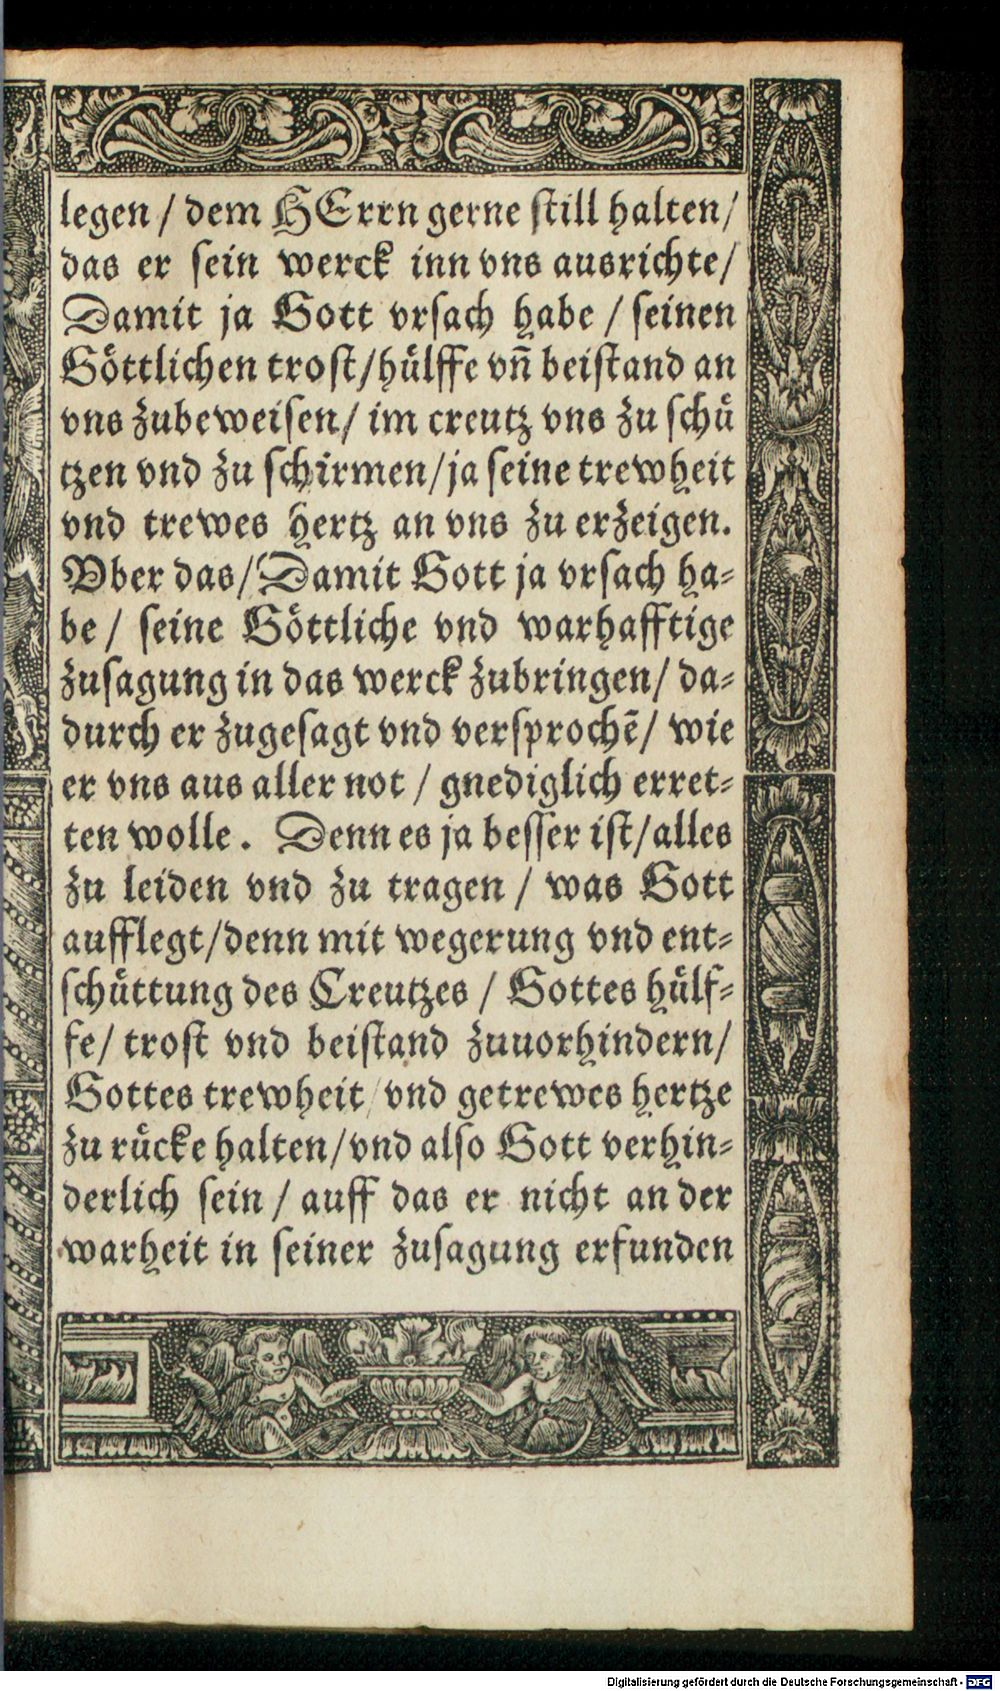 legen / dem HErrn gerne still halten/
das er sein werck inn vns ausrichte/
Damit ja Gott vrsach habe / seinen
Göttlichen trost/hülffe vñ beistand an
vns zubeweisen/ im creutz vns zu schü
tzen vnd zu schirmen/ja seine trewheit
vnd trewes hertz an vns zu erzeigen.
Vber das/Damit Gott ja vrsach ha-
be / seine Göttliche vnd warhafftige
zusagung in das werck zubringen/ da-
durch er zugesagt vnd versprochē/ wie
er vns aus aller not / gnediglich erret-
ten wolle. Denn es ja besser ist/alles
zu leiden vnd zu tragen / was Gott
aufflegt/denn mit wegerung vnd ent-
schüttung des Creutzes / Gottes hülf-
fe/ trost vnd beistand zuuorhindern/
Gottes trewheit/vnd getrewes hertze
zu rücke halten/vnd also Gott verhin-
derlich sein / auff das er nicht an der
warheit in seiner zusagung erfunden
Digitalisierung gefördert durch die Deutsche Forschungsgemeinschaft - DFG